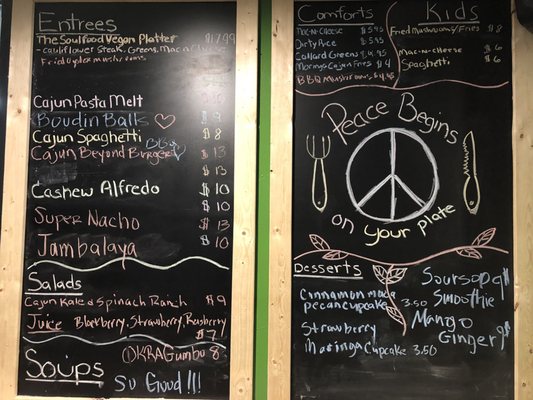 Entrees
The Soulfood Vegan Platter $17.99
- cauliflower steak, Greens, Mac n Cheese
Fried oyster mushrooms
Cajun Pasta Melt
Boudin Balls $9
Cajun Spaghetti $8
Cajun Beyond Burger BBQ $13
$13
Cashew Alfredo $10
$10
Super Nacho $13
Jambalaya $10
Salads
Cajun Kale & Spinach Ranch $9
Juice Blackberry, Strawberry, Rasberry
$7
Soups ① OKRA Gumbo 8
So Good!!!
Comforts
Mac-n-Cheese $5.95
Dirty Rice $5.95
Collard Greens $4.95
Moringa Cajun Fries $4
BBQ Mushrooms $4.95
Kids
Fried Mushrooms/Fries $8
Mac-n-Cheese $6
Spaghetti $6
Peace Begins
on your plate
Desserts
Cinnamon maca
pecan cupcake 3.50
Strawberry
Moringa Cupcake 3.50
Soursop 9$
Smoothie
Mango
Ginger 9$